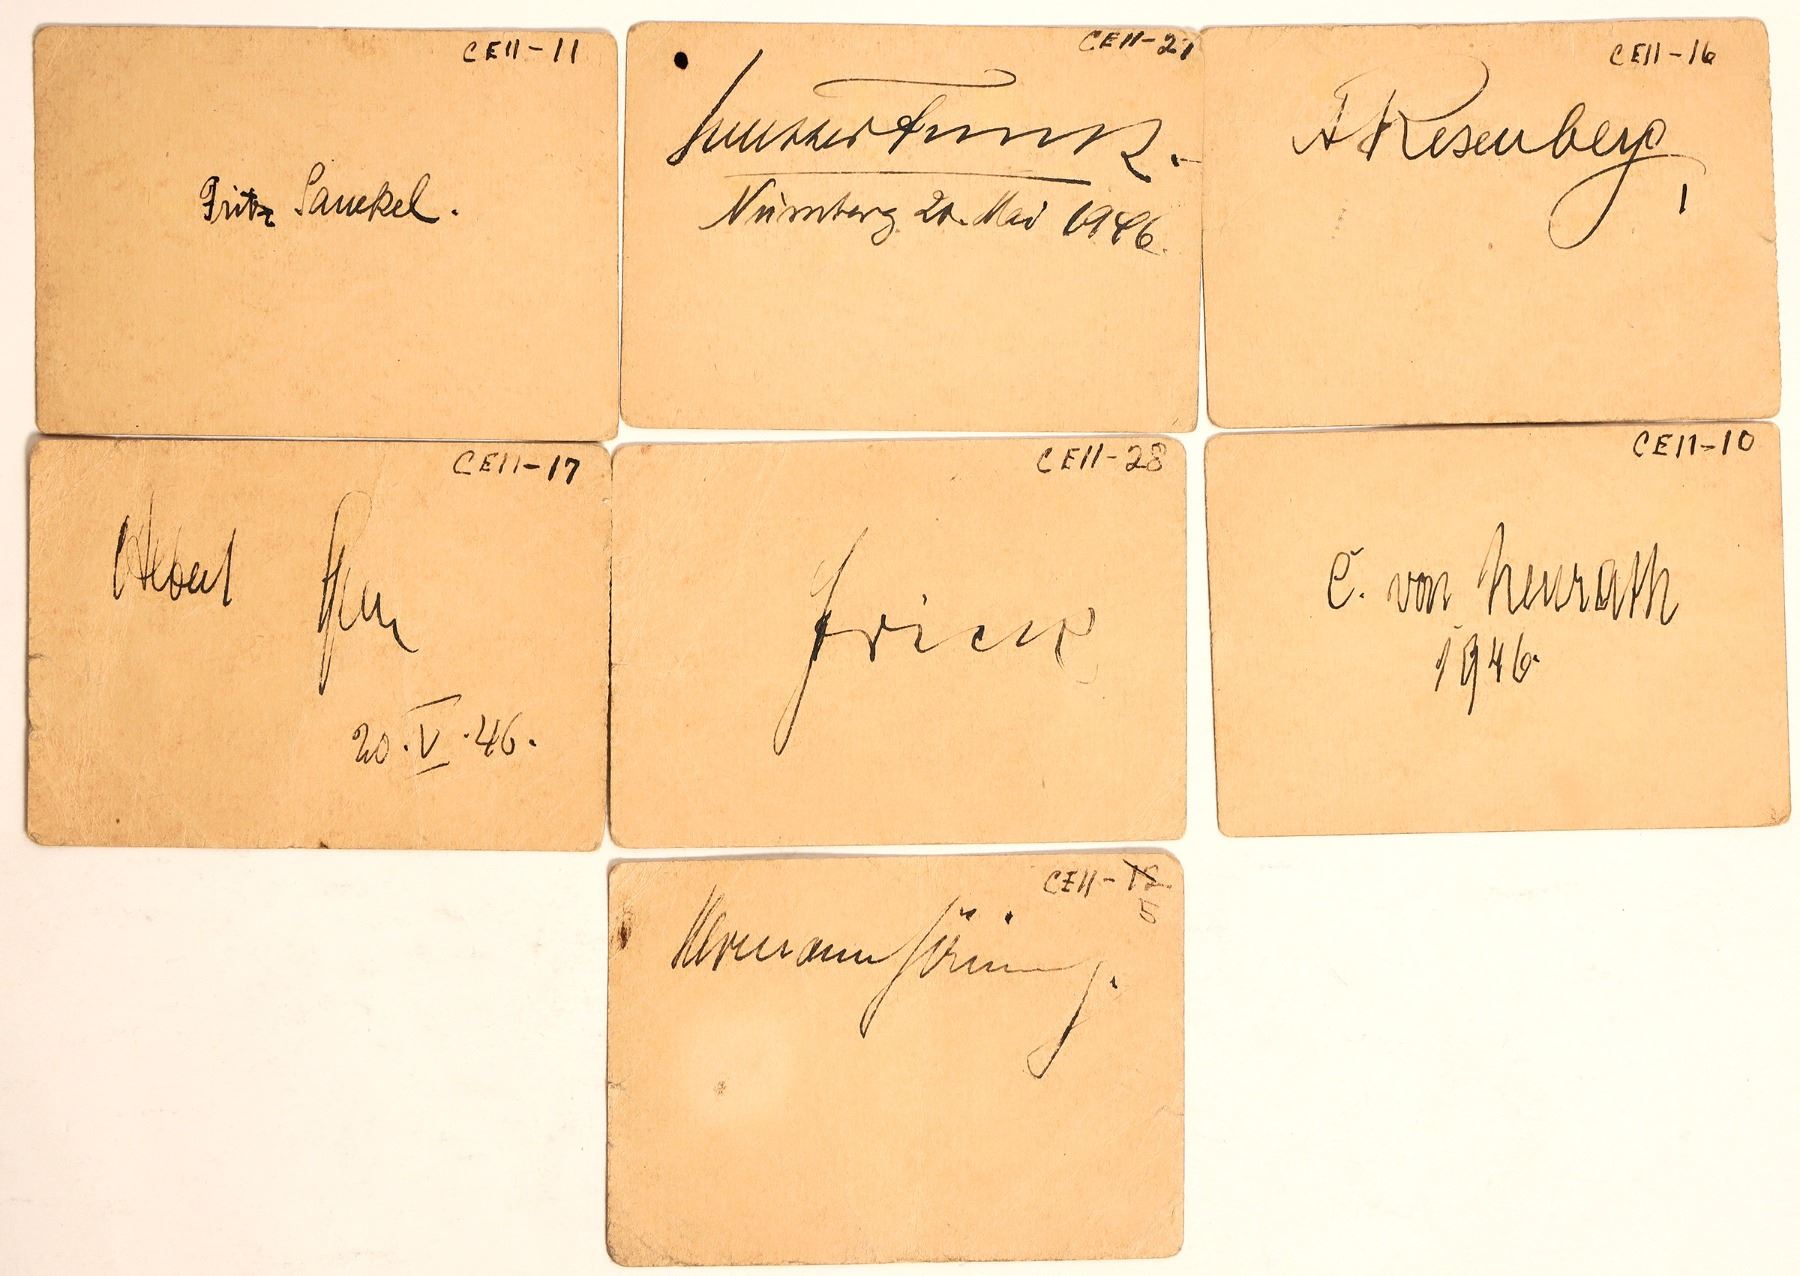 CEll-11
Fritz Sauckel.
CEll-27
Walther Funk.
Nürnberg 20. Mai 1946.
CEll-16
A Rosenberg
CEll-17
Albert Speer
20.V.46.
CEll-28
Frick
CEll-10
C. von Neurath
1946.
CEll-12
5
Hermann Göring.